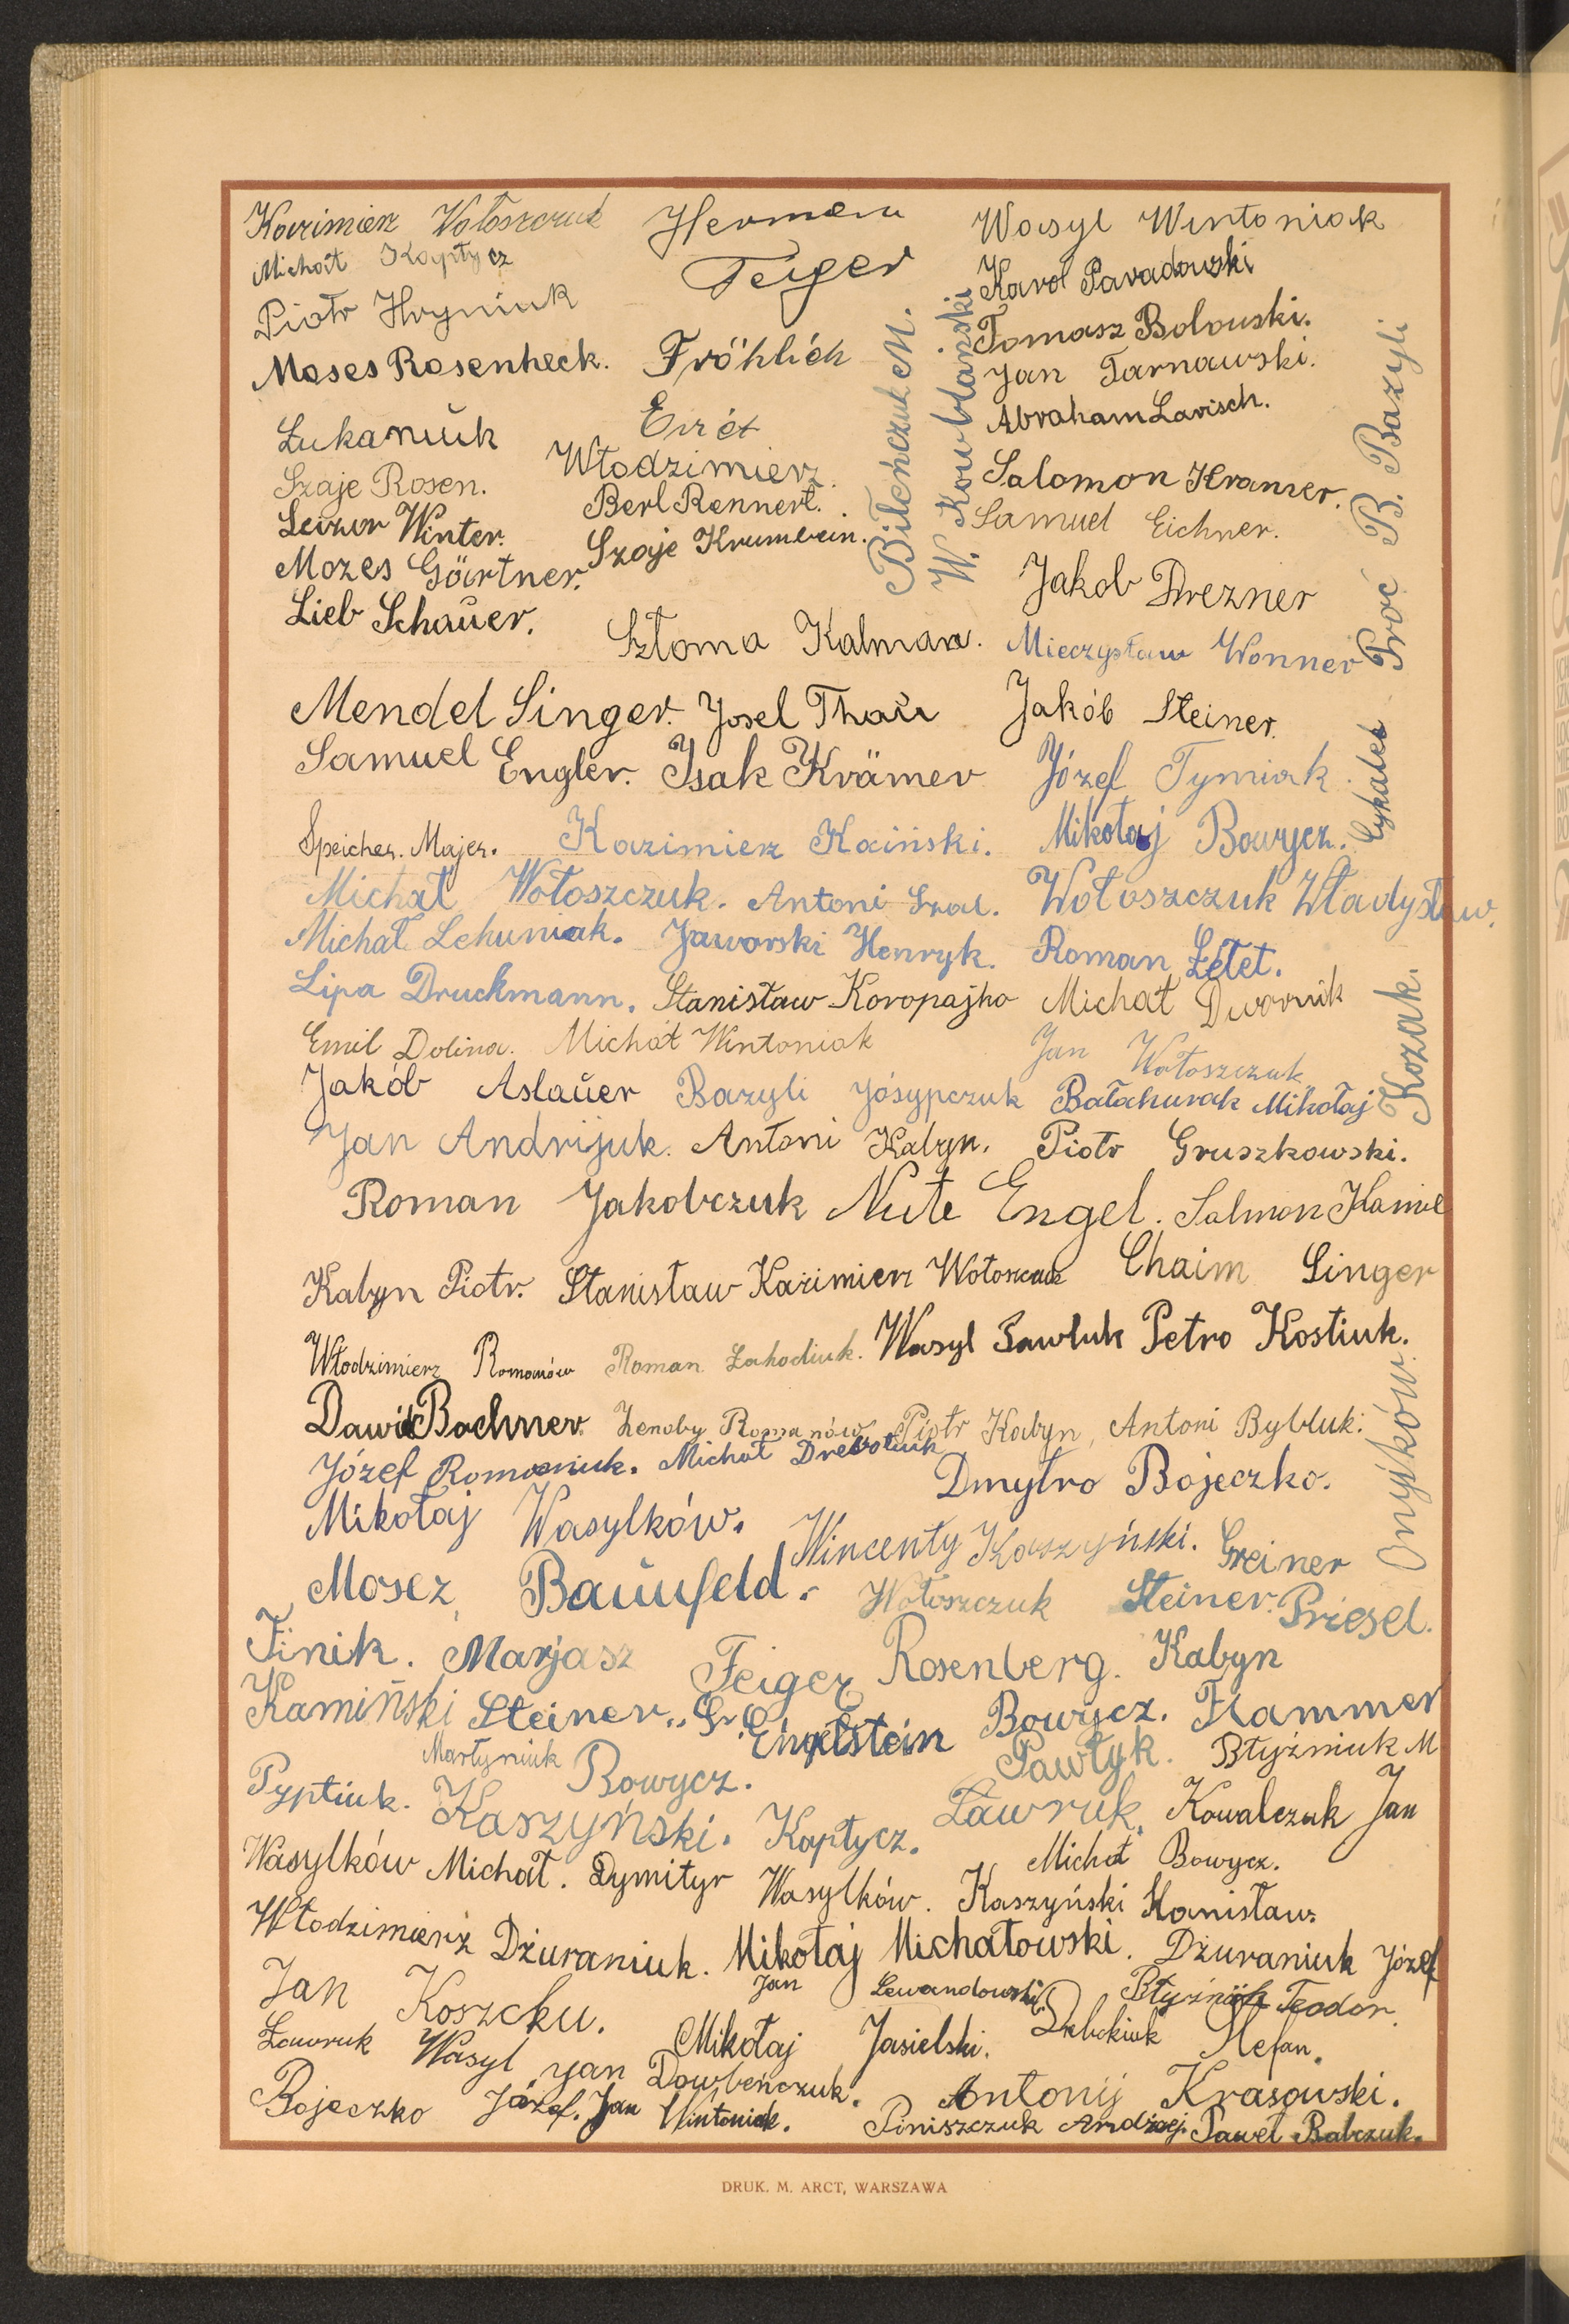 Kazimierz Wołoszczuk Herman Wasyl Wintoniak
Michał Kaptycz Feiger Karol Paradowski
Piotr Hryniuk Tomasz Bolouski.
Moses Rosenheck. Fröhlich Jan Tarnawski.
Abraham Larisch.
Łukaniuk
Szaje Rosen. Włodzimierz. Salomon Kramer.
Leizor Winter. Berl Rennert. Samuel Eichner.
Mozes Gärtner. Szaje Krumbein.
Bileńczuk M.
W. Kowblański
Proć B. Bazyli
Lieb Schauer. Jakob Drezner
Szloma Kalman. Mieczysław Wonner
Mendel Singer. Josel Thau Jakób Steiner.
Samuel Engler. Isak Krämer Józef Tymiak.
Speicher. Majer. Kazimierz Kaiński. Mikołaj Bowycz.
Michał Wołoszczuk. Antoni Wołoszczuk Władysław.
Michał Lehuniak. Jaworski Henryk. Roman
Lipa Druckmann. Stanisław Koropajho Michał Dwornik
Emil Dolina. Michał Wintoniak Jan Wołoszczuk
Kozak.
Jakób Aslauer Bazyli Jósypczuk Bałahurak Mikołaj
Jan Andrijuk. Antoni Kabyn. Piotr Gruszkowski.
Roman Jakobczuk Nute Engel. Salmon
Kabyn Piotr. Stanisław Kazimierz Wołoszczuk Chaim Singer
Włodzimierz Romanów Roman Zahodiuk. Wasyl Sawluk Petro Kostiuk.
Dawid Bachner. Zenoby Romanów Piotr Kabyn, Antoni Bybluk.
Józef Romaniuk. Michał Dmytro Bojeczko.
Mikołaj Wasylków. Wincenty Kaszyński. Greiner
Onyśków
Mosez Baumfeld. Wołoszczuk Steiner. Priesel.
Finik. Marjasz Feiger Rosenberg. Kabyn
Kamiński Steiner. Engelstein Bowycz. Hammer
Martyniuk Bowycz. Pawłyk. Błyźniuk M
Pyptiuk. Kaszyński. Kaptycz. Ławruk. Kowalczuk Jan
Michał Bowycz.
Wasylków Michał. Dymityr Wasylków. Kaszyński Stanisław
Włodzimierz Dżuraniuk. Mikołaj Michałowski. Dżuraniuk Józef
Jan Koszcku. Jan Lewandowski Błyźniuk Teodor.
Ławruk Wasyl Mikołaj Jasielski. Stefan.
Jan Dowbeńczuk. Antonij Krasowski.
Bojeczko Józef. Jan Wintoniak. Piniszczuk Andrzej. Paweł Babczuk.
DRUK. M. ARCT, WARSZAWA